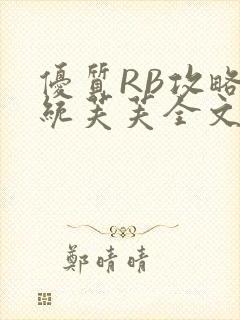 優質RB攻略
統芙芙全文
鄭晴晴